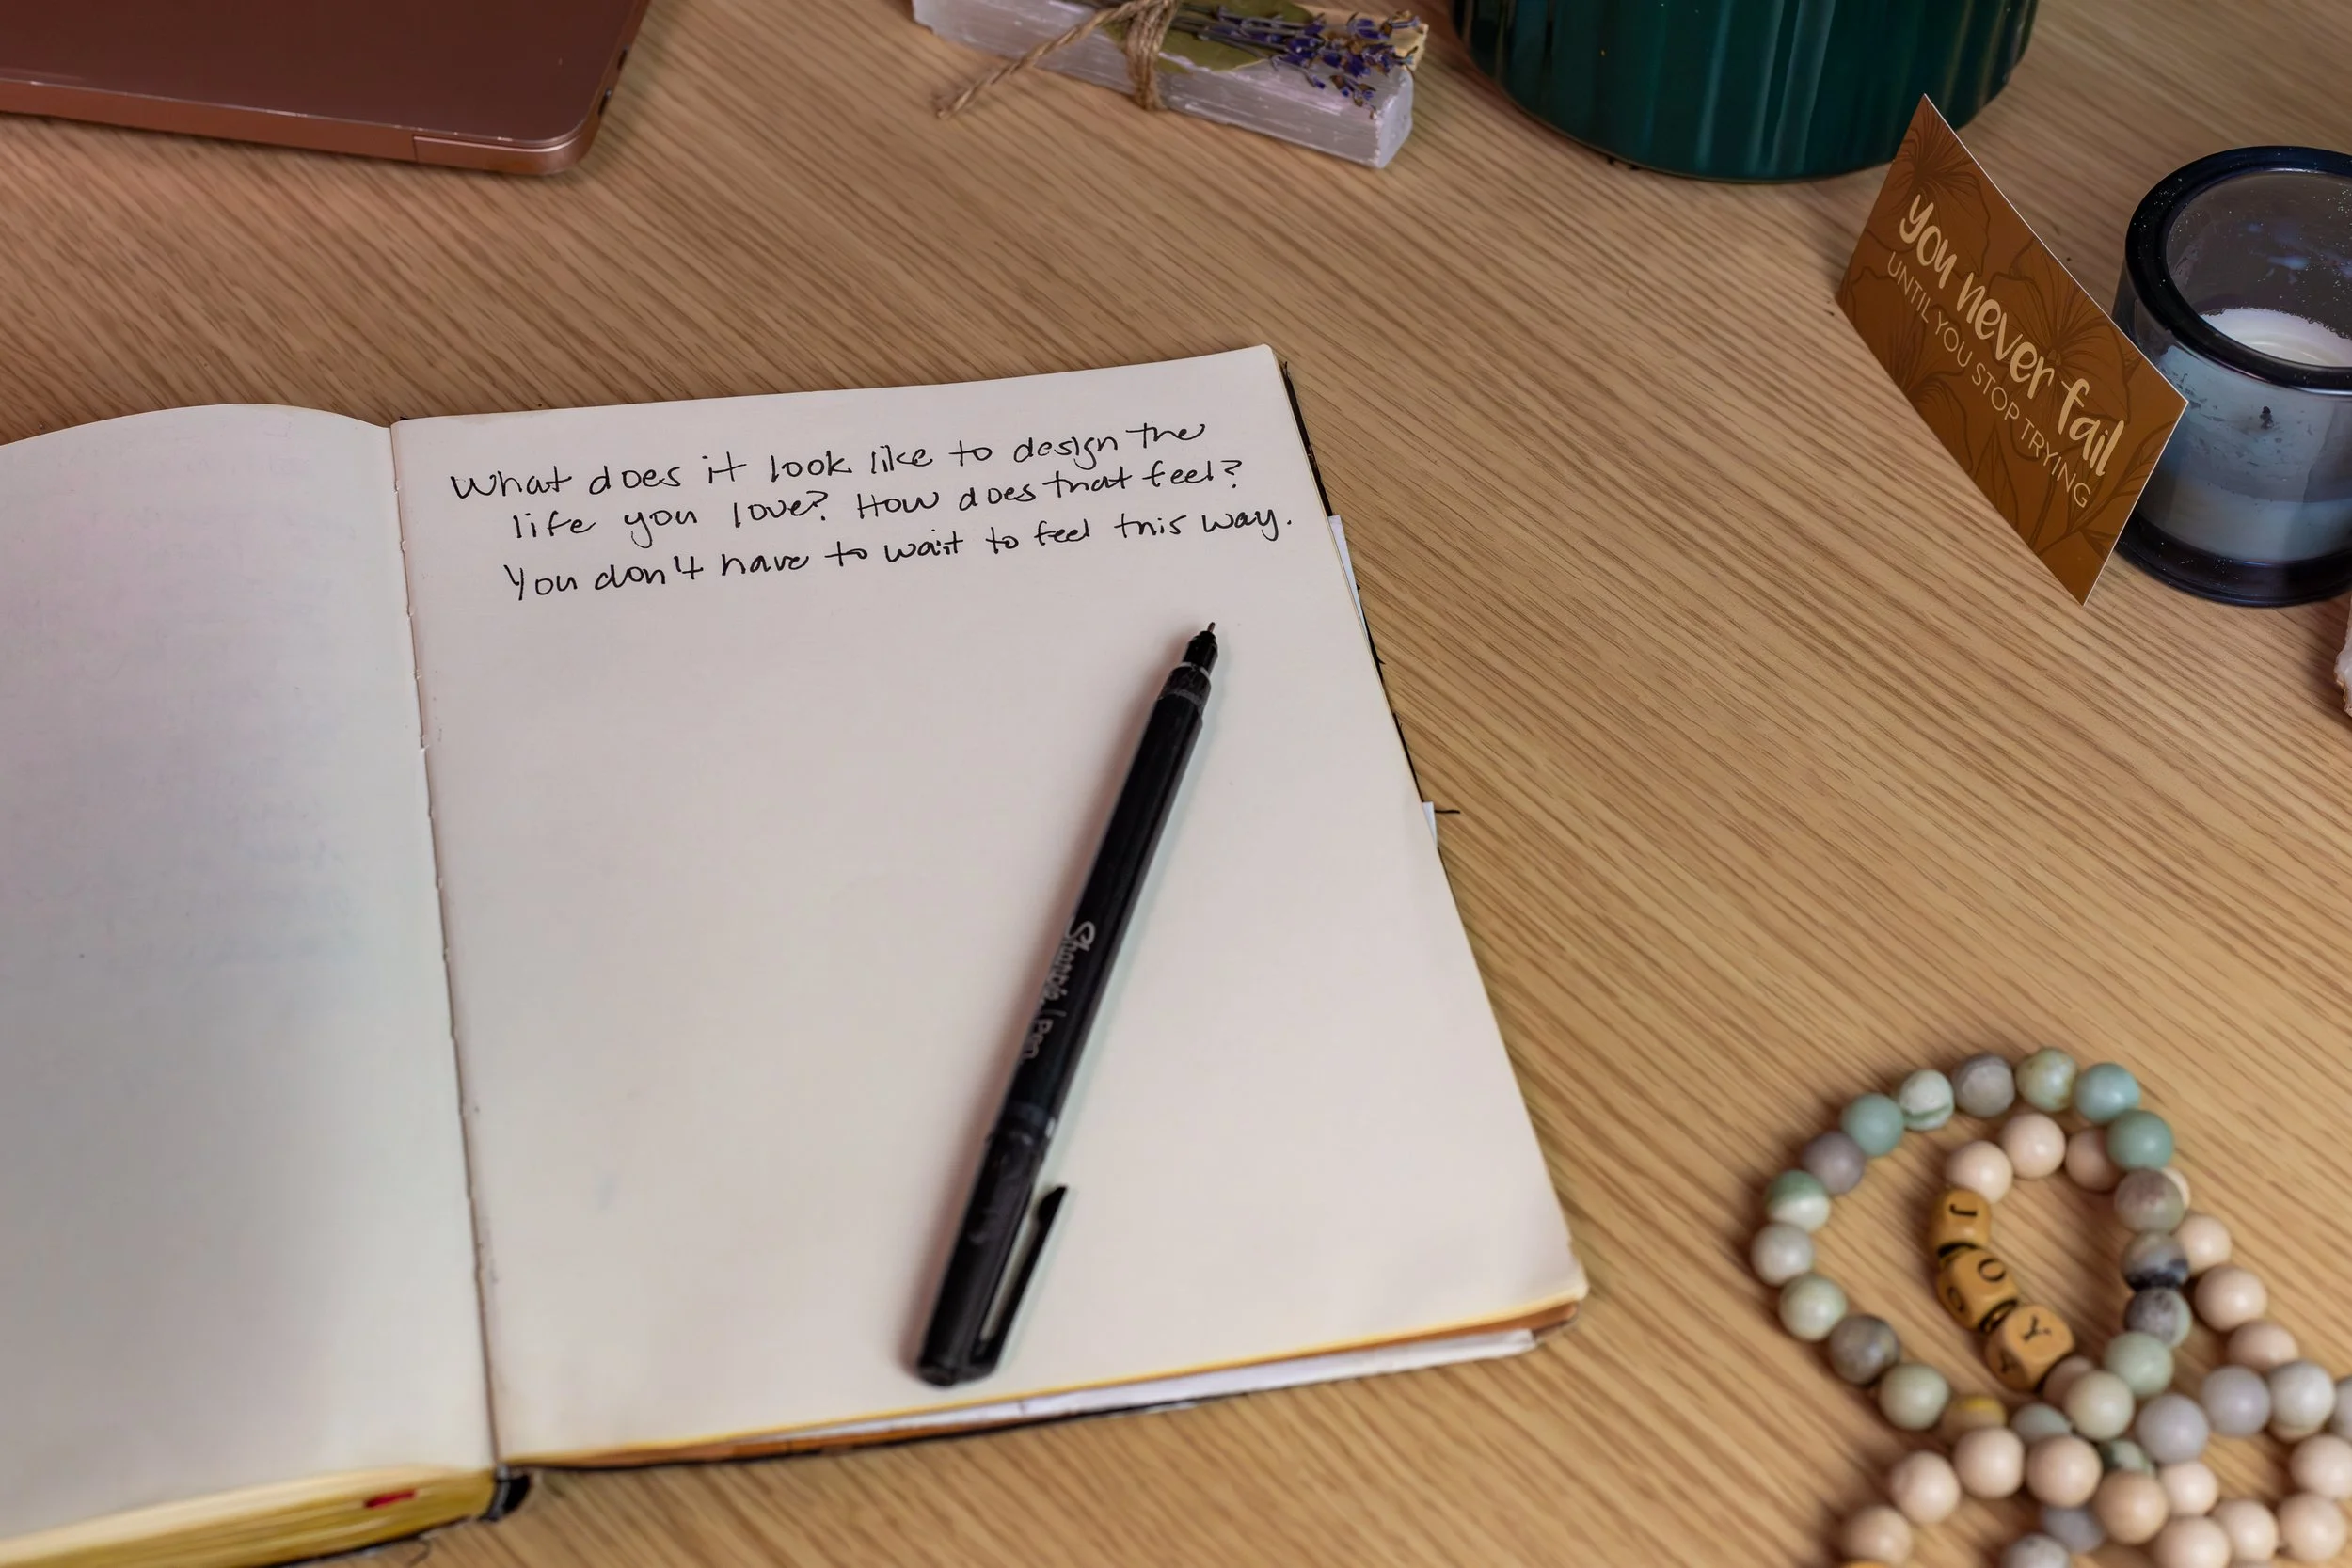 What does it look like to design the
life you love? How does that feel?
You don't have to wait to feel this way.
you never fail
UNTIL YOU STOP TRYING
Sharpie | Pen
J
O
Y